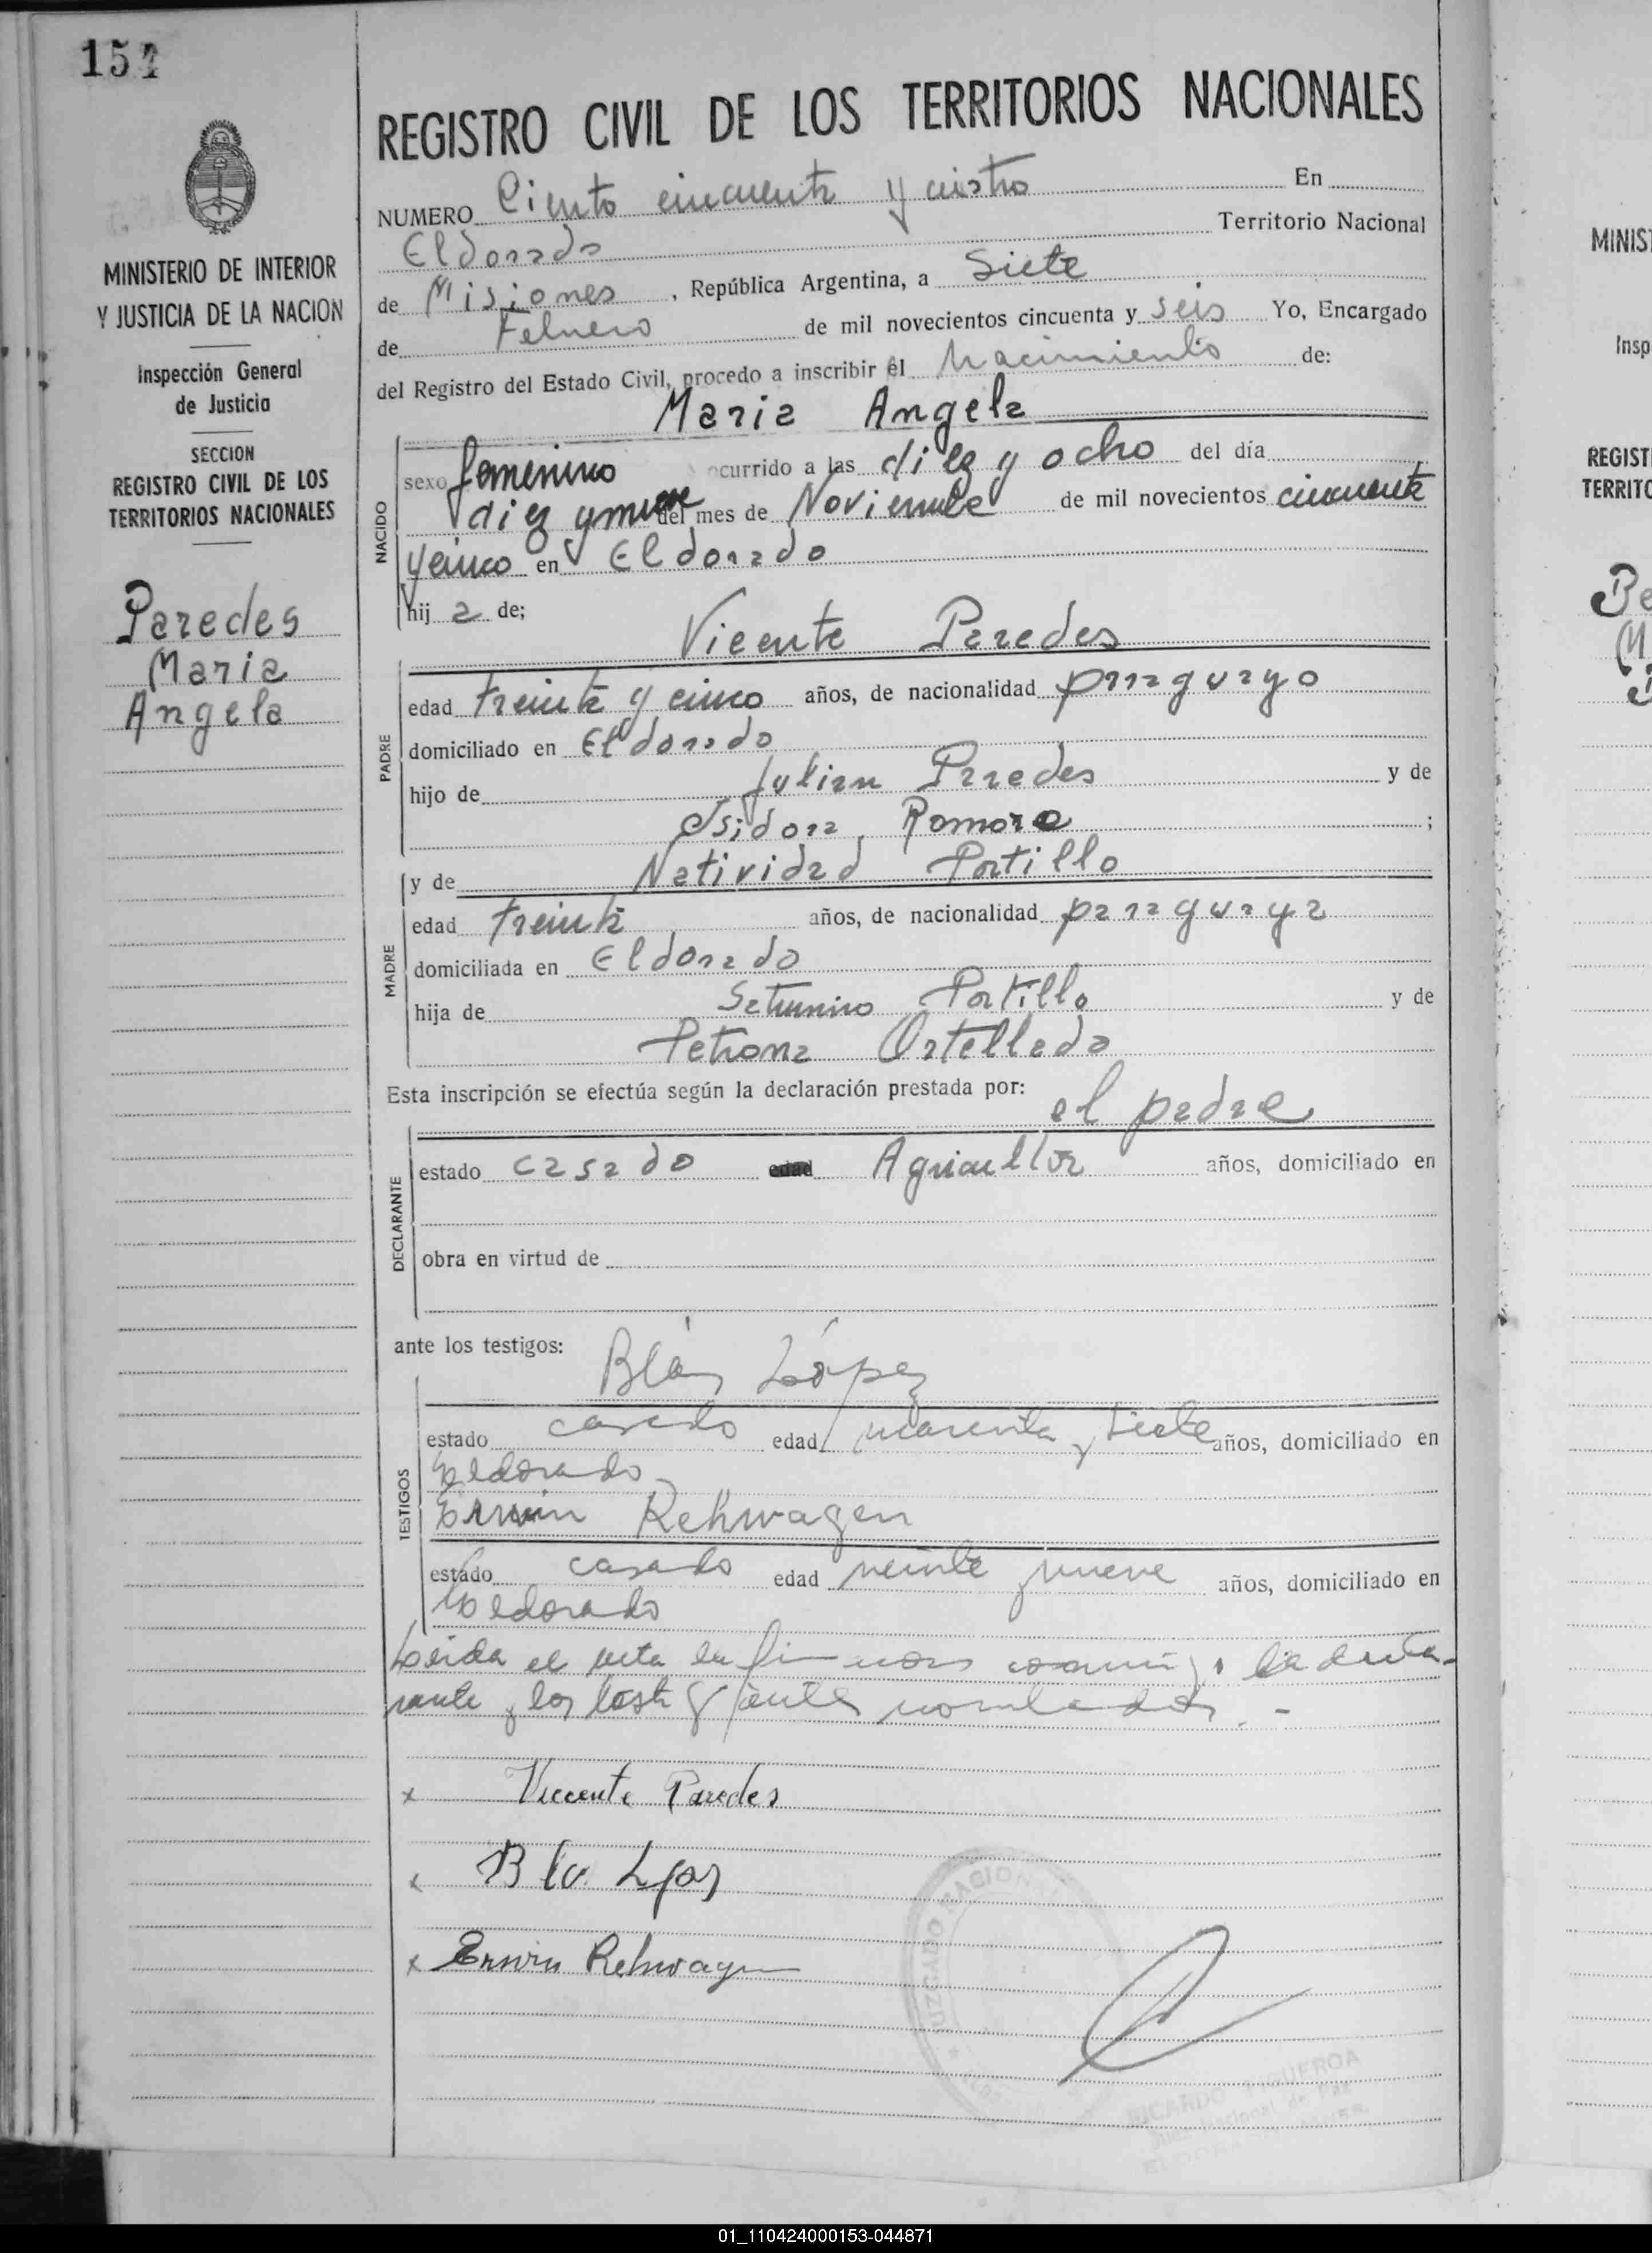 154
MINISTERIO DE INTERIOR
Y JUSTICIA DE LA NACION
Inspección General
de Justicia
SECCION
REGISTRO CIVIL DE LOS
TERRITORIOS NACIONALES
Paredes
Maria
Angela
REGISTRO CIVIL DE LOS TERRITORIOS NACIONALES
NUMERO Ciento cincuenta y cuatro En
Eldorado Territorio Nacional
de Misiones, República Argentina, a Siete
de Febrero de mil novecientos cincuenta y seis Yo, Encargado
del Registro del Estado Civil, procedo a inscribir el Nacimiento de:
Maria Angela
NACIDO
sexo femenino ocurrido a las diez y ocho del día
diez y nueve del mes de Noviembre de mil novecientos cincuenta
y cinco en Eldorado
hij a de;
Vicente Paredes
PADRE
edad treinta y cinco años, de nacionalidad paraguayo
domiciliado en Eldorado
hijo de Julian Paredes y de
Isidora Romero ;
y de Natividad Portillo
MADRE
edad treinta años, de nacionalidad paraguaya
domiciliada en Eldorado
hija de Saturnino Portillo y de
Petrona Ortellado
Esta inscripción se efectúa según la declaración prestada por:
el padre
DECLARANTE
estado casado edad Agricultor años, domiciliado en
obra en virtud de
ante los testigos:
Blás López
TESTIGOS
estado casado edad cuarenta y siete años, domiciliado en
Eldorado
Erwin Rehwagen
estado casado edad veinte y nueve años, domiciliado en
Eldorado
Leida el acta la firman conmigo la decla-
rante y los testigos antes nombrados. -
x Viccente Paredes
x
x Erwin Rehwagen
JUZGADO NACIONAL
RICARDO FIGUEROA
Nacional de Paz
MINIS
Insp
REGIST
TERRITO
01_110424000153-044871